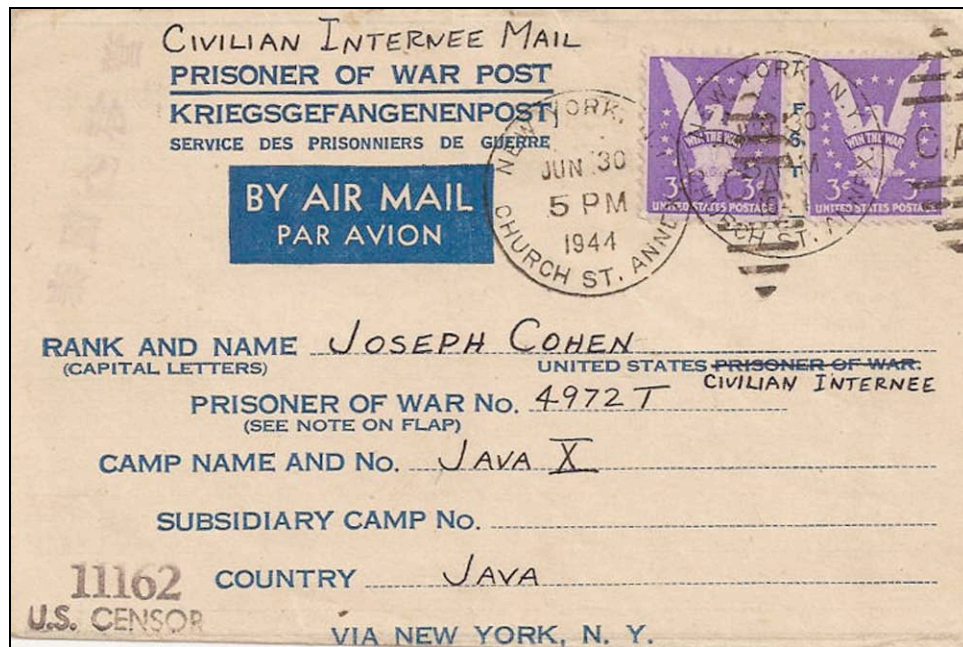 CIVILIAN INTERNEE MAIL
PRISONER OF WAR POST
KRIEGSGEFANGENENPOST
SERVICE DES PRISONNIERS DE GUERRE
BY AIR MAIL
PAR AVION
NEW YORK, N.Y.
JUN 30
5 PM
1944
CHURCH ST. ANNEX
WIN THE WAR
3¢ 3¢
UNITED STATES POSTAGE
NEW YORK, N.Y.
30
CHURCH ST. ANNEX
WIN THE WAR
3¢
UNITED STATES POSTAGE
RANK AND NAME JOSEPH COHEN
(CAPITAL LETTERS) UNITED STATES PRISONER OF WAR.
CIVILIAN INTERNEE
PRISONER OF WAR No. 4972T
(SEE NOTE ON FLAP)
CAMP NAME AND No. JAVA X
SUBSIDIARY CAMP No.
COUNTRY JAVA
11162
U.S. CENSOR
VIA NEW YORK, N. Y.